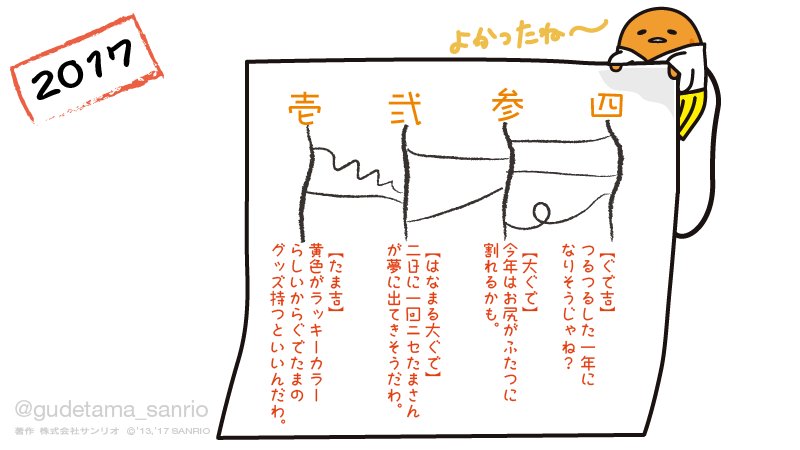 2017
よかったね〜
壱 弐 参 四
【ぐで吉】
つるつるした一年に
なりそうじゃね?
【大ぐで】
今年はお尻がふたつに
割れるかも。
【はなまる大ぐで】
二日に一回ニセたまさん
が夢に出てきそうだわ。
【たま吉】
黄色がラッキーカラー
らしいからぐでたまの
グッズ持つといいんだわ。
@gudetama_sanrio
著作 株式会社サンリオ ©'13,'17 SANRIO